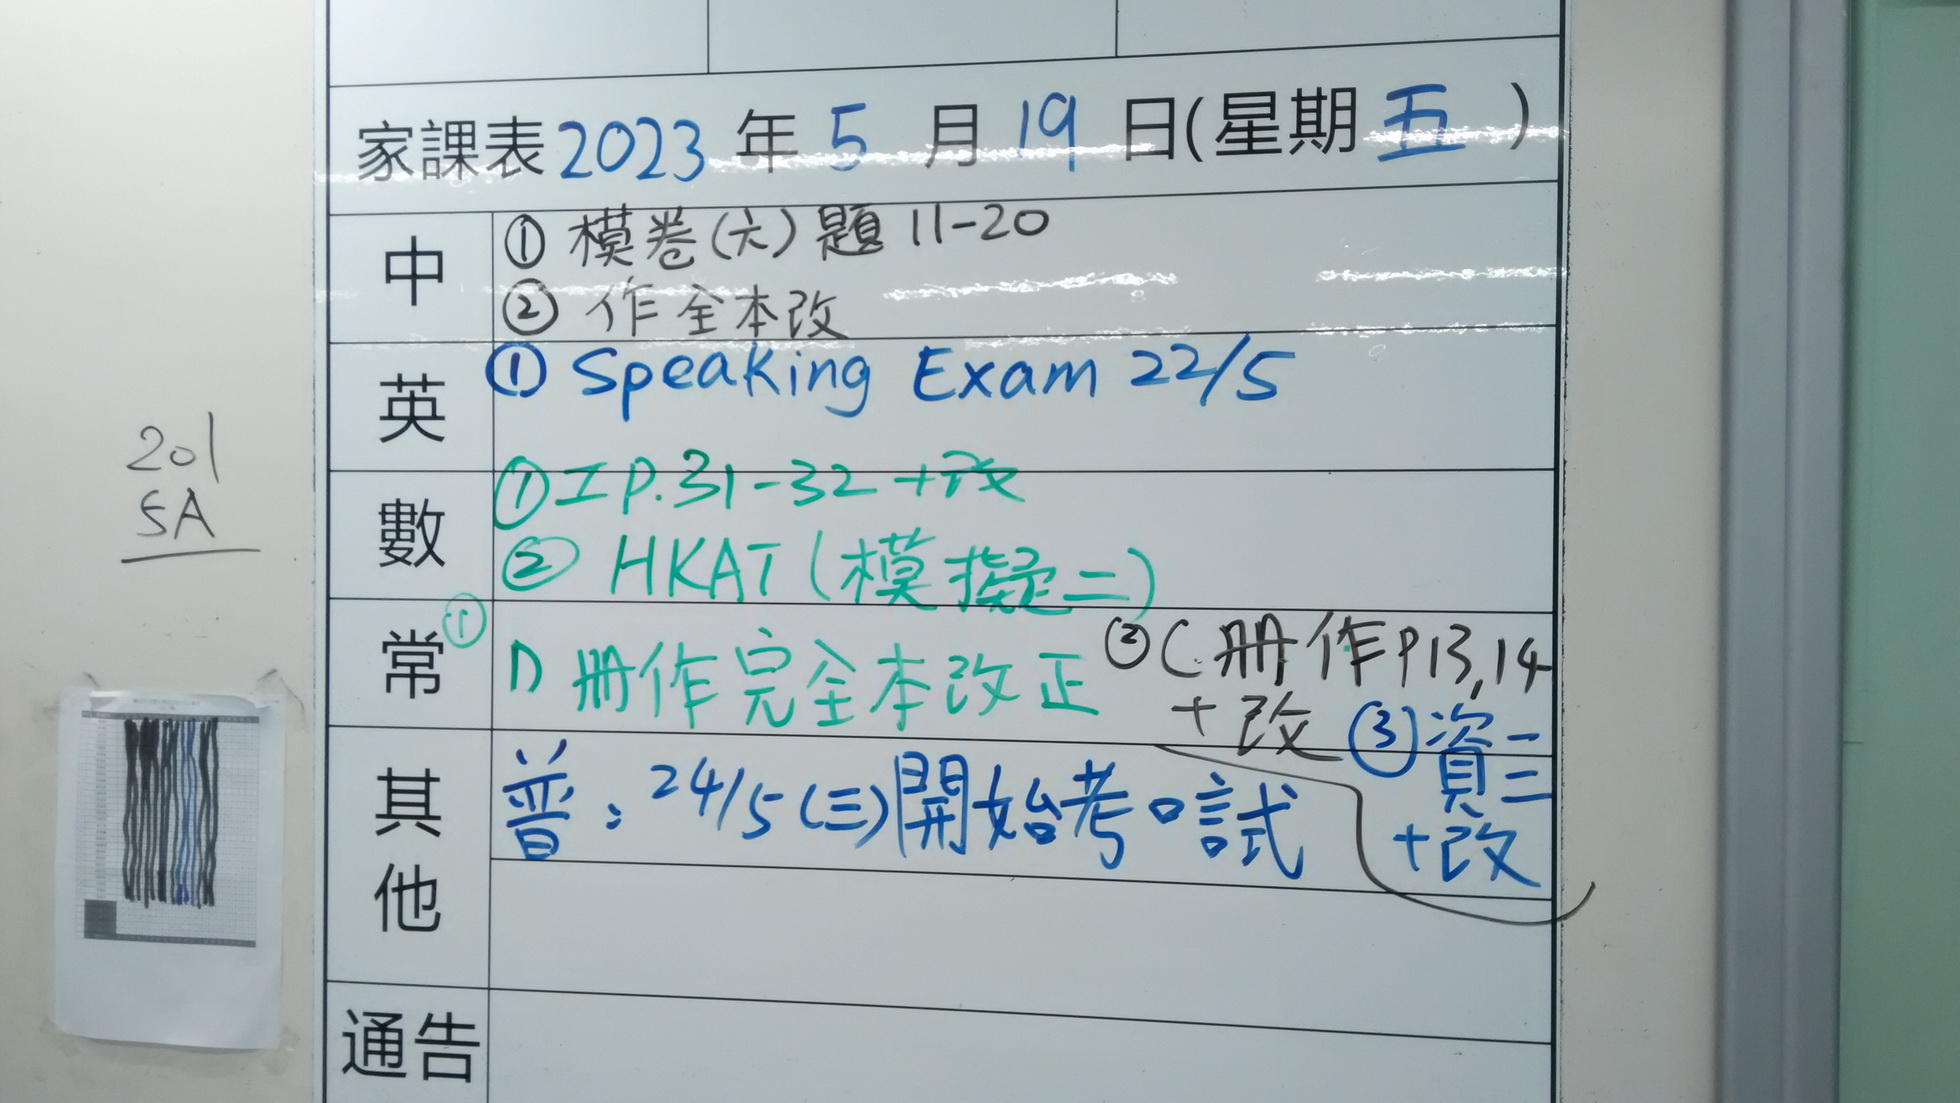 家課表 2023 年 5 月 19 日(星期 五 )
中
① 模卷(六) 題 11-20
② 作全本改
英
① Speaking Exam 22/5
數
① 工 P.31-32 +改
② HKAT (模擬二)
常
① D 冊作完全本改正
② C 冊作P13,14
+改
③ 資一
二
+改
其他
普: 24/5 (三) 開始考口試
通告
201
5A